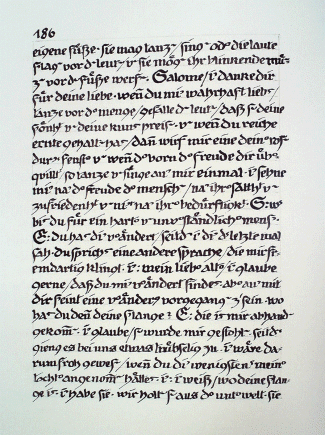 186
eigene füße. sie mag tanz/ sing od die laute
slag vor d leut/ v sie mög ihr klinkende münz
z vor d füße werf. Salome/ i danke dir
für deine liebe. wen du mi wahrhaft liebst/
tanze vor d menge/ gefalle d leut/ daß s deine
v deine kunst preis. v wen du reiche
ernte gehalt hast/ dan wirf mir eine dein ros
dur fenst v wen d born d freude dir üb
quill/ so tanze v singe au mir einmal. i sehne
mi na d freude d mensch/ na ihr satth v
zufriedenht v ni na ihr bedürftigk. S: w
bi du für ein hart v unvständlich mensch.
E: du hast di vändert/ seitd i di d letzte mal
sah. du sprichst eine andere sprache/ die mir fr
emdartig klingt. i: mein lieb alt/ i glaube
gerne/ daß du mi vändert findest. ab au mit
dir seint eine vänder vorgegang z sein. wo
hast du den deine slange? E: die ist mir abhand
gekom. i glaube/ s wurde mir gestohl. seitd
gieng es bei uns etwas trübselig zu. i wäre da
rum froh gewes/ wen du di wenigstens mein
tocht angenom hättest. i: i weiß/ wo deine slan
ge ist. i habe sie. wir holt s aus d untwelt. sie